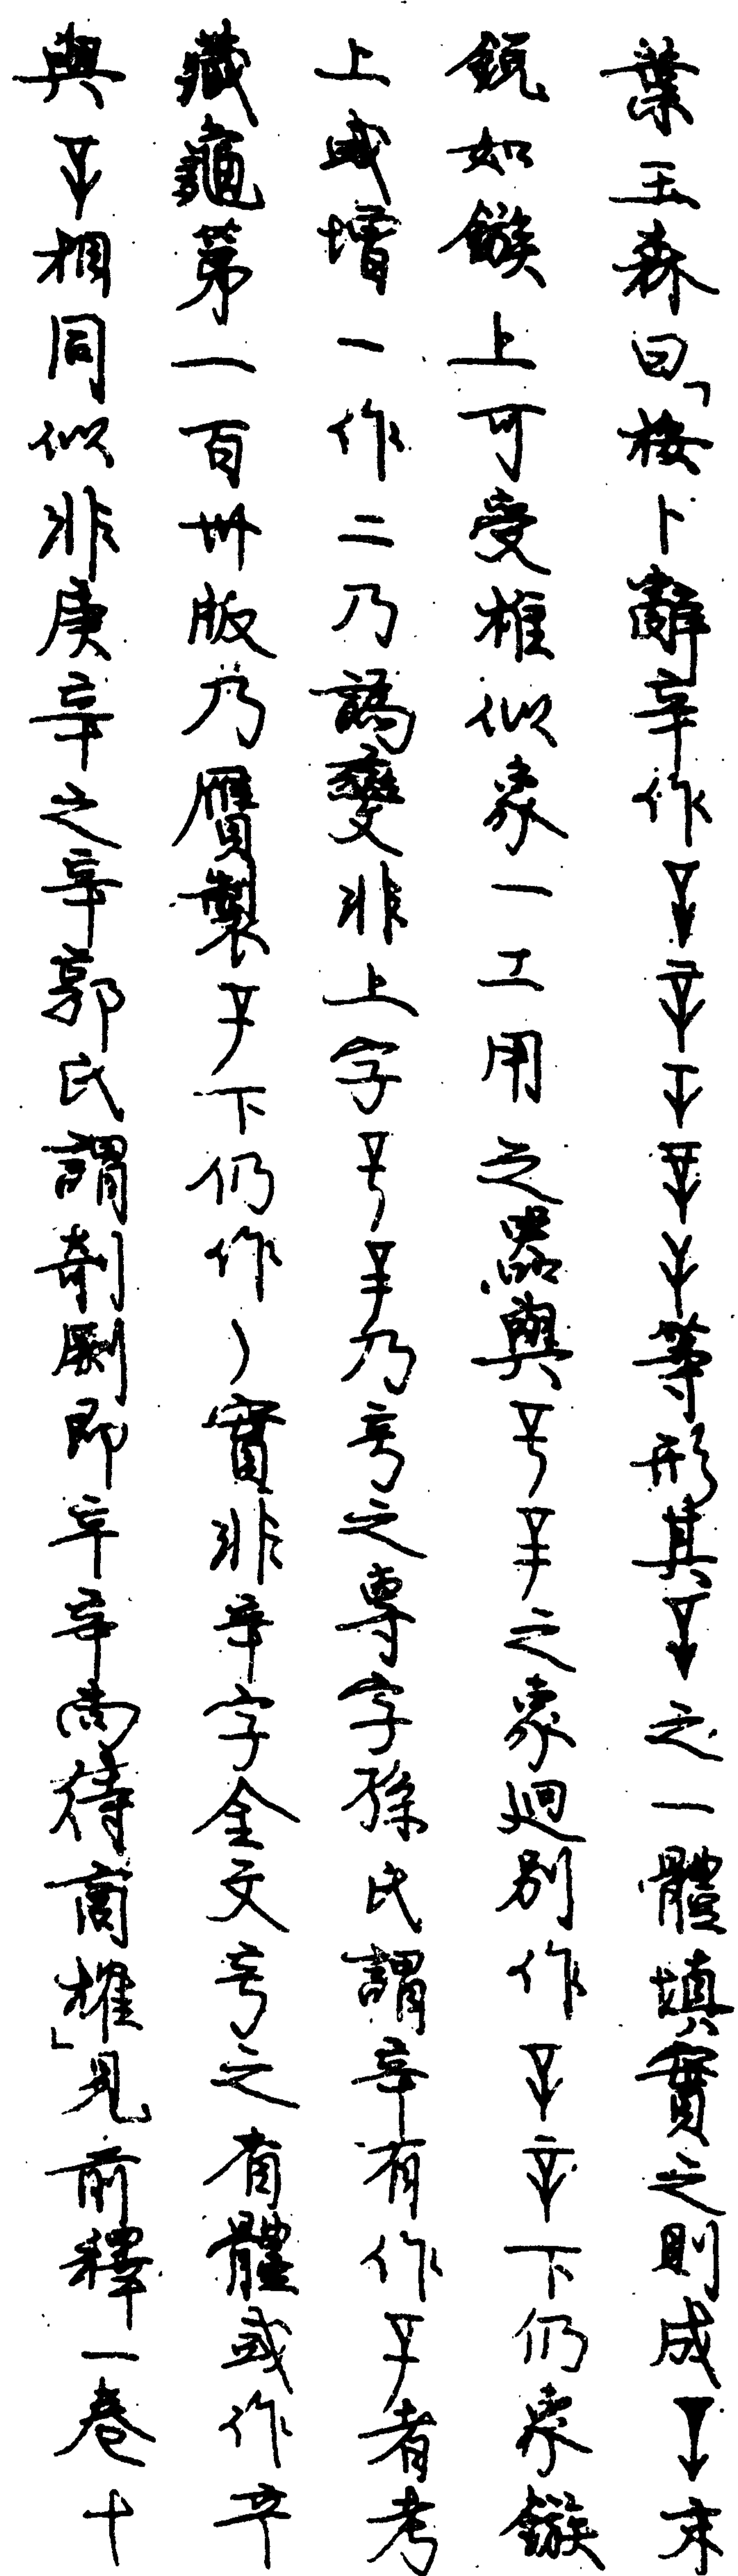 葉玉森曰「桉卜辭辛作等形其之一體填實之則成末
銳如鏃上可受椎似象一工用之器與之象迥別作下仍象鏃
上或增一作二乃譌變非上字乃䇂之專字孫氏謂辛有作者考
藏龜第一百卅版乃贋製下仍作實非辛字金文䇂之省體或作
與相同似非庚辛之辛郭氏謂剞劂即辛尚待商榷」見前釋一卷十